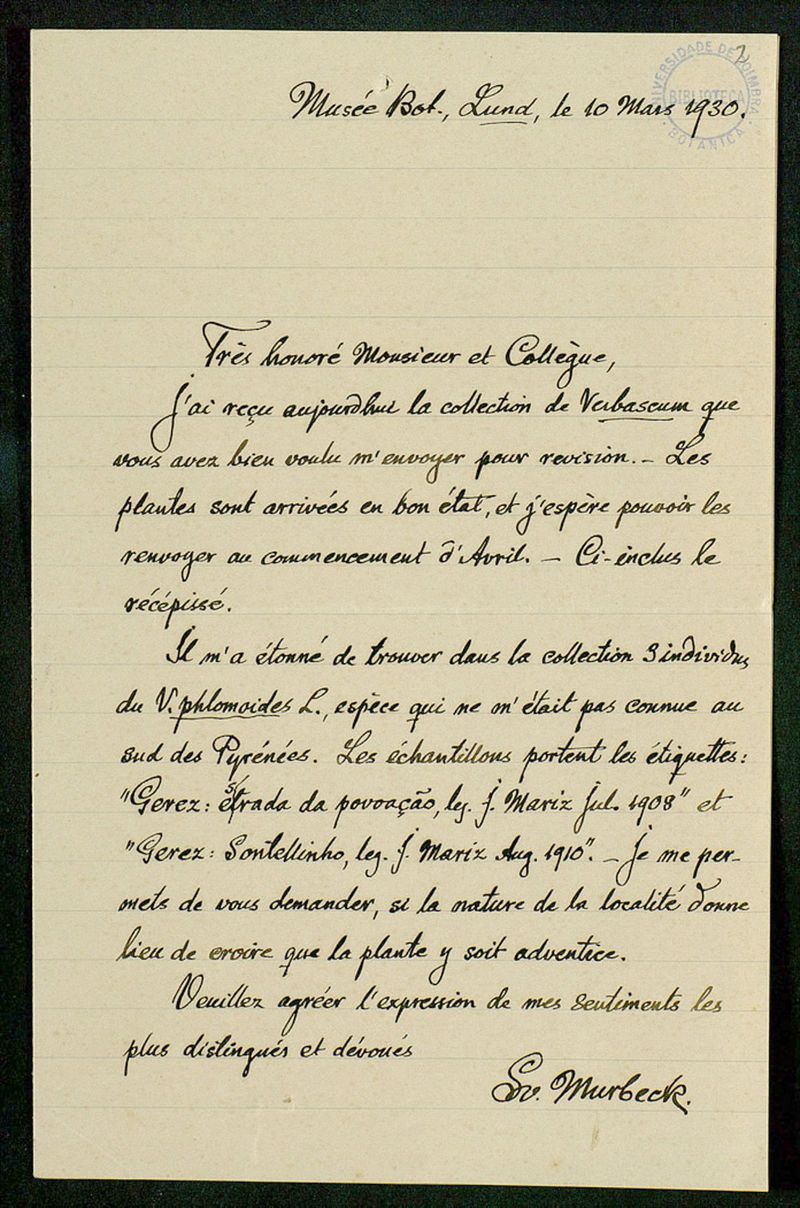 2
UNIVERSIDADE DE COIMBRA
BIBLIOTECA
BOTANICA
Musée Bot., Lund, le 10 Mars 1930.
Très honoré Monsieur et Collègue,
J'ai reçu aujourdhui la collection de Verbascum que
vous avez bien voulu m'envoyer pour revision. – Les
plantes sont arrivées en bon état, et j'espère pouvoir les
renvoyer au commencement d'Avril. – Ci-inclus le
récépissé.
Il m'a étonné de trouver dans la collection 3 individus
du V. phlomoides L., espèce qui ne m'était pas connue au
sud des Pyrénées. Les échantillons portent les étiquettes:
"Gerez: estrada da povoação, leg. J. Mariz Jul. 1908" et
"Gerez: Sontellinho, leg. J. Mariz Aug. 1910". – Je me per-
mets de vous demander, si la nature de la localité donne
lieu de croire que la plante y soit adventice.
Veuillez agréer l'expression de mes sentiments les
plus distingués et dévoués
Sv. Murbeck.